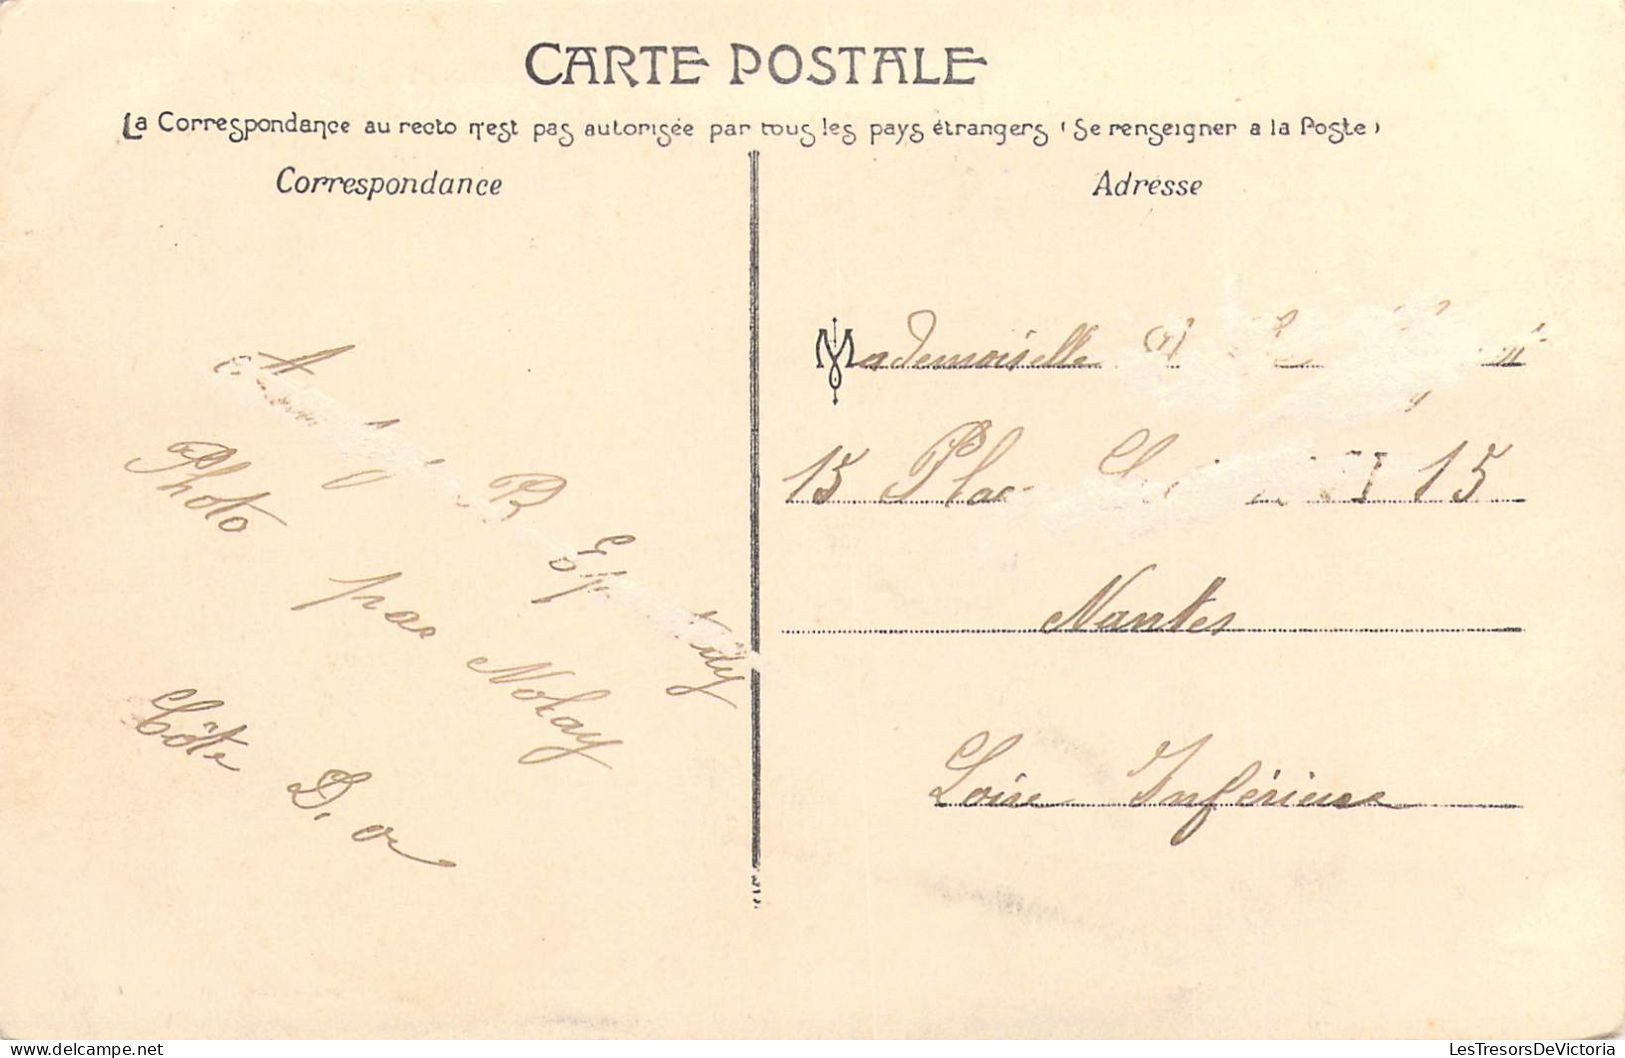 CARTE POSTALE
La Correspondance au recto n'est pas autorisée par tous les pays étrangers (Se renseigner a la Poste)
Correspondance
Adresse
Photo
par Nolay
Côte D. or
Mademoiselle
15 15
Nantes
Loire Inférieure
LesTresorsDeVictoria